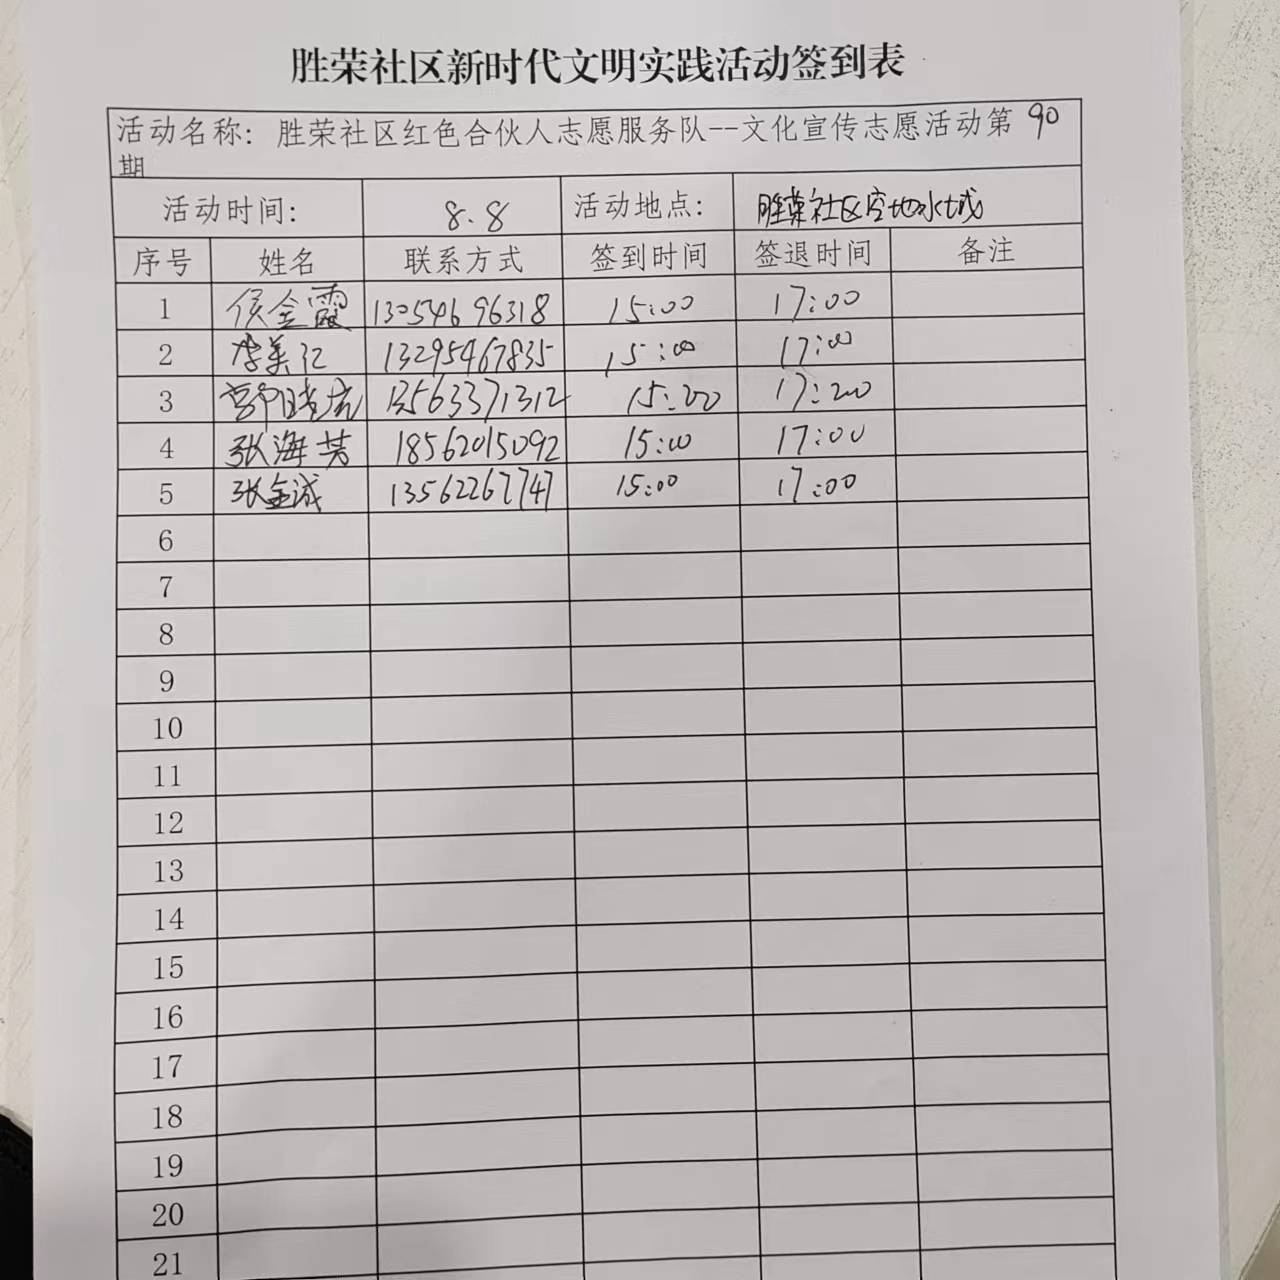 胜荣社区新时代文明实践活动签到表
活动名称: 胜荣社区红色合伙人志愿服务队--文化宣传志愿活动第 90
期
活动时间: 8.8 活动地点: 胜荣社区空地水城
序号 姓名 联系方式 签到时间 签退时间 备注
1 侯金霞 13054696318 15:00 17:00
2 李美红 13295467835 15:00 17:00
3 13563371312 15:00 17:00
4 张海芳 18562015092 15:00 17:00
5 张金诚 13562267747 15:00 17:00
6
7
8
9
10
11
12
13
14
15
16
17
18
19
20
21